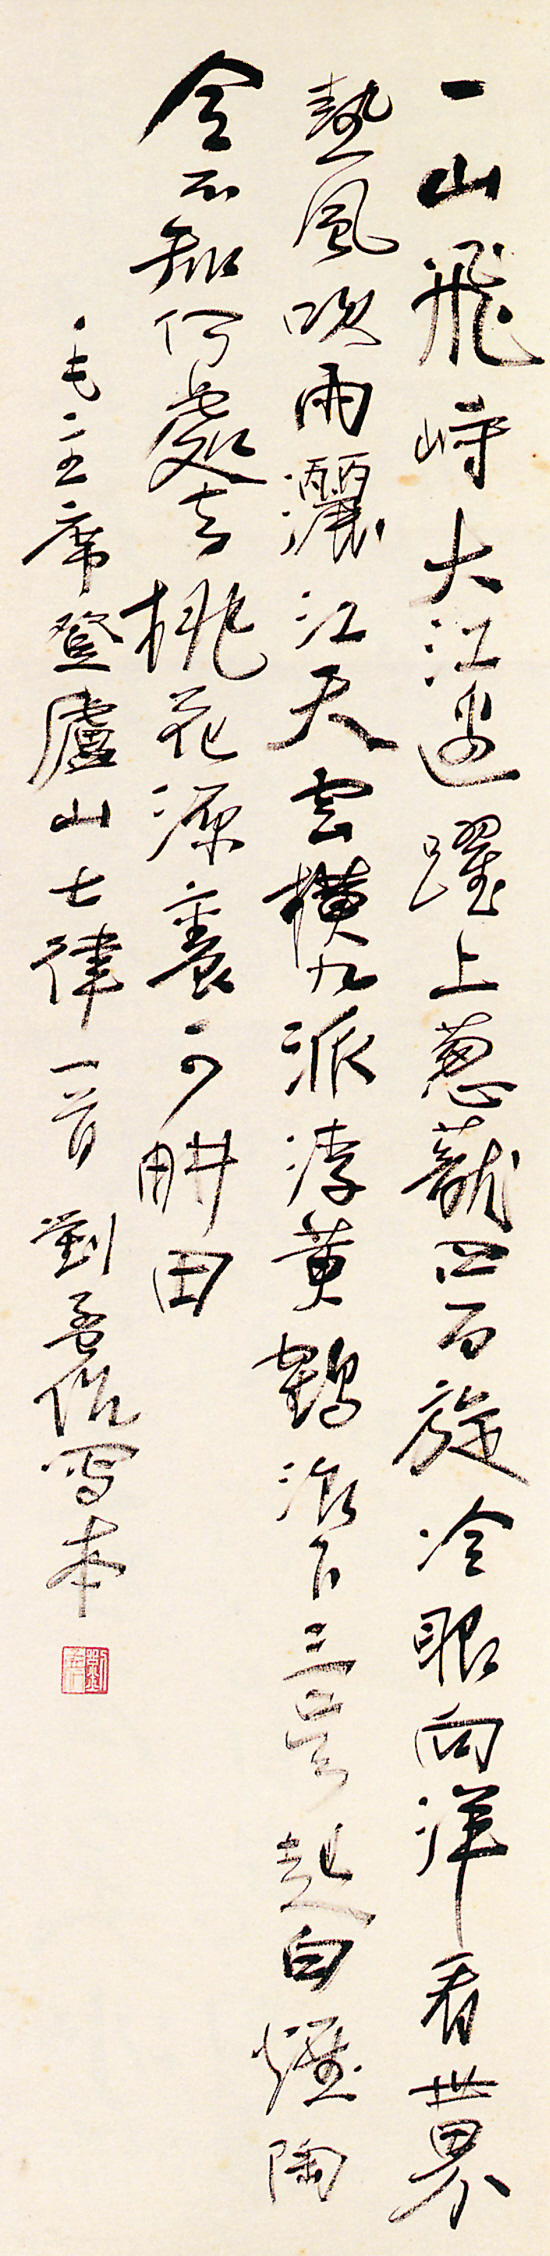 一山飛峙大江邊躍上葱蘢四百旋冷眼向洋看世界
熱風吹雨灑江天雲橫九派浮黄鶴浪下三吴起白煙陶
令不知何處去桃花源裏可耕田
毛主席登廬山七律一首 劉孟伉寫本